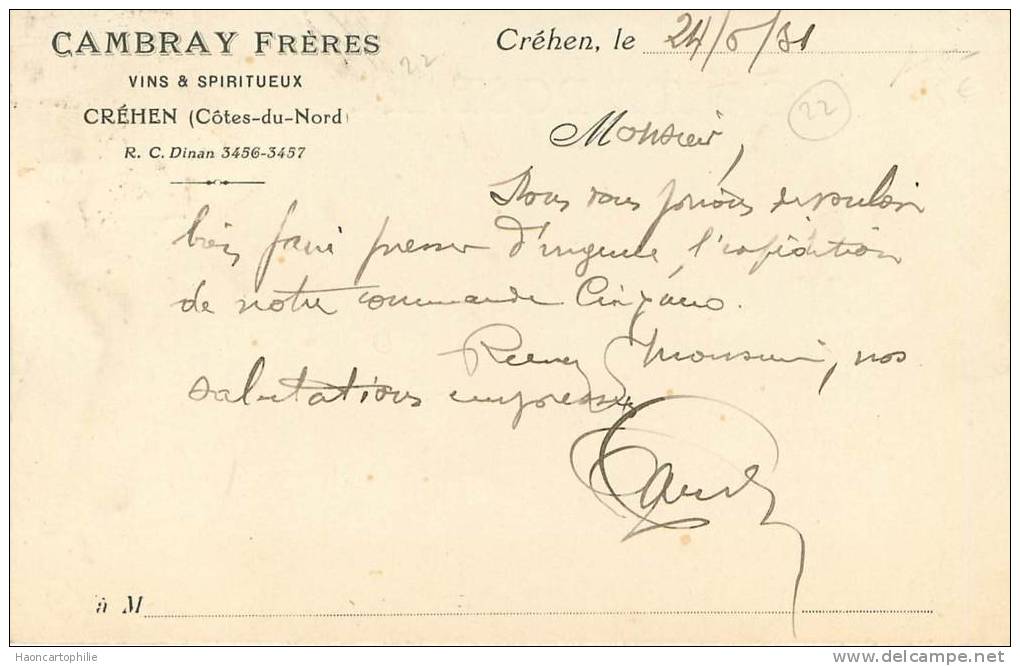 CAMBRAY FRÈRES
VINS & SPIRITUEUX
CRÉHEN (Côtes-du-Nord)
R. C. Dinan 3456-3457
Créhen, le 24/6/31
22
22
Monsieur,
Nous vous prions de vouloir
bien faire presser d'urgence l'expédition
de notre commande Cinzano.
Recevez Monsieur, nos
salutations empressées
à M
Haoncartophilie
www.delcampe.net